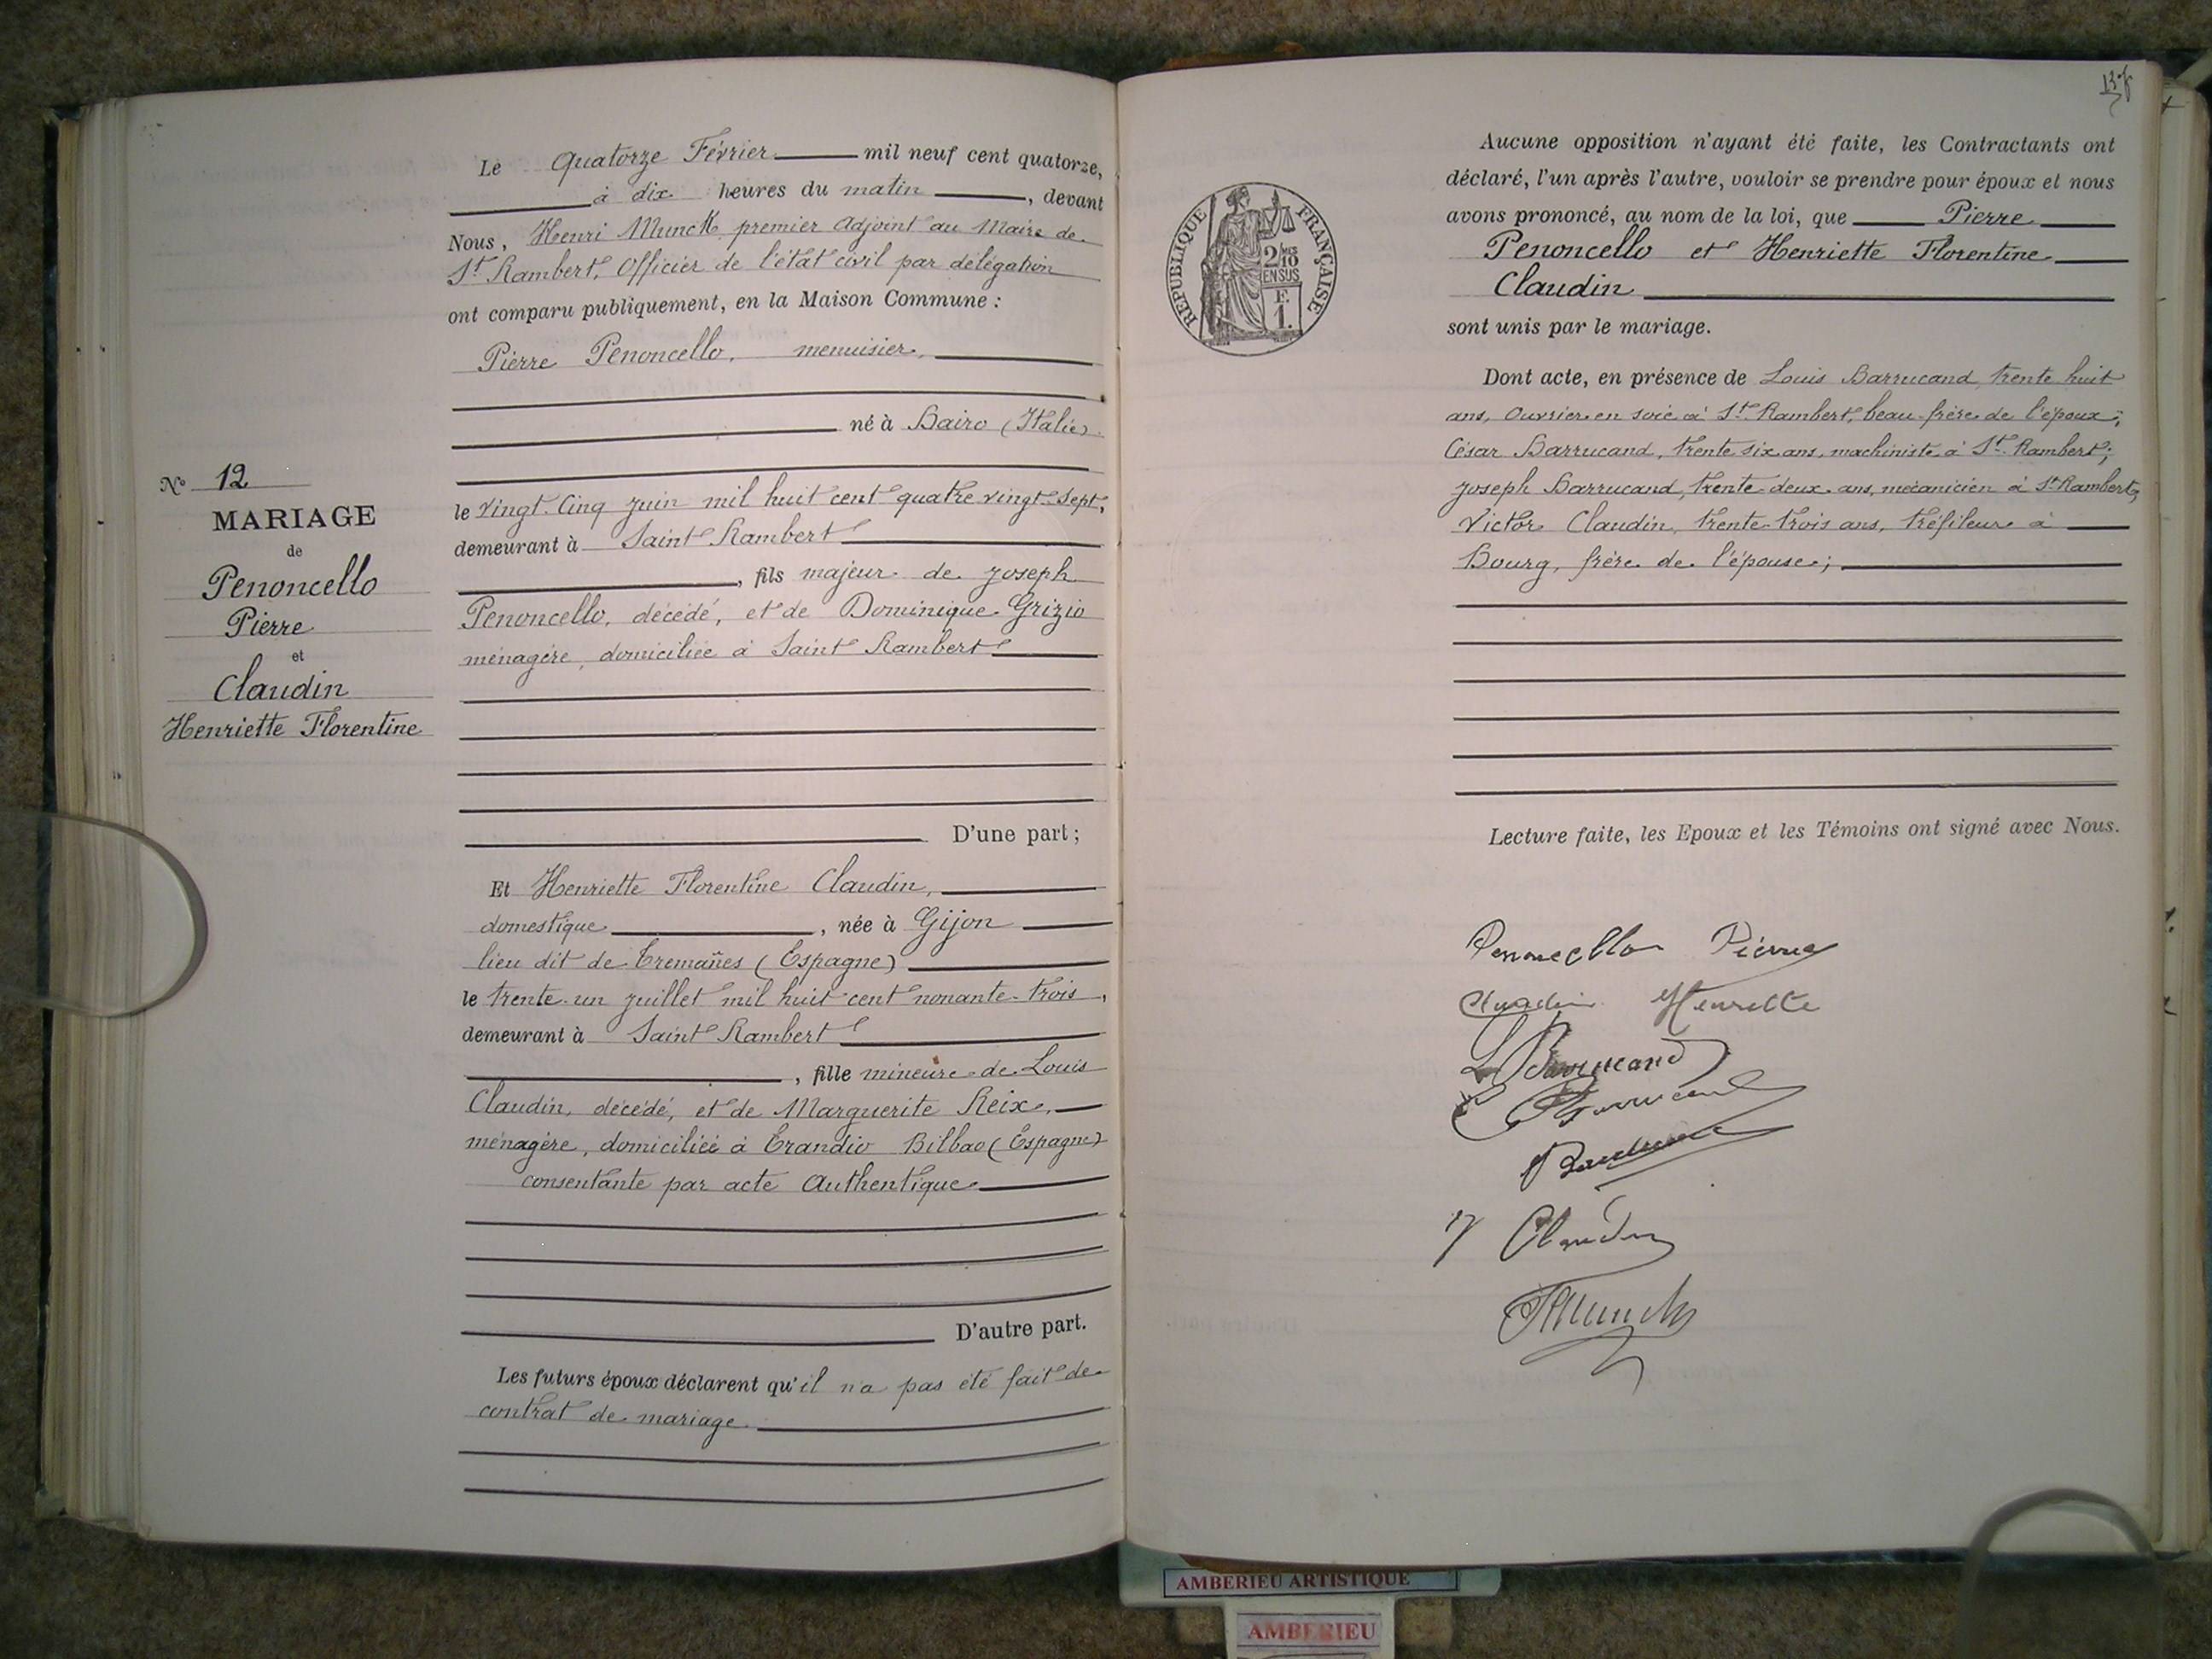 Le Quatorze Février mil neuf cent quatorze,
à dix heures du matin, devant
Nous, Henri Munck premier Adjoint au Maire de
St Rambert, Officier de l'état civil par délégation
ont comparu publiquement, en la Maison Commune :
Pierre Penoncello, menuisier,
né à Bairo (Italie)
le Vingt-Cinq juin mil huit cent quatre vingt-sept,
demeurant à Saint Rambert
, fils majeur de Joseph
Penoncello, décédé, et de Dominique Grizio
ménagère, domiciliée à Saint Rambert
D'une part ;
Et Henriette Florentine Claudin,
domestique, née à Gijon
lieu dit de Tremañes (Espagne)
le trente-un juillet mil huit cent nonante-trois,
demeurant à Saint Rambert
, fille mineure de Louis
Claudin, décédé, et de Marguerite Reix,
ménagère, domiciliée à Erandio Bilbao (Espagne)
consentante par acte Authentique
D'autre part.
Les futurs époux déclarent qu'il n'a pas été fait de
contrat de mariage.
No 12
MARIAGE
de
Penoncello
Pierre
et
Claudin
Henriette Florentine
Aucune opposition n'ayant été faite, les Contractants ont
déclaré, l'un après l'autre, vouloir se prendre pour époux et nous
avons prononcé, au nom de la loi, que Pierre
Penoncello et Henriette Florentine
Claudin
sont unis par le mariage.
Dont acte, en présence de Louis Barrucand, trente huit
ans, Ouvrier en soie à St Rambert, beau-frère de l'époux ;
César Barrucand, trente six ans, machiniste à St Rambert ;
Joseph Barrucand, trente-deux ans, mécanicien à St Rambert,
Victor Claudin, trente-trois ans, tréfileur à
Bourg, frère de l'épouse ;
Lecture faite, les Epoux et les Témoins ont signé avec Nous.
Penoncello Pierre
Claudin Henriette
L Barrucand
C Barrucand
V Claudin
HMunck
RÉPUBLIQUE FRANÇAISE
2/10MES
EN SUS
F.
1.
AMBERIEU ARTISTIQUE
AMBERIEU